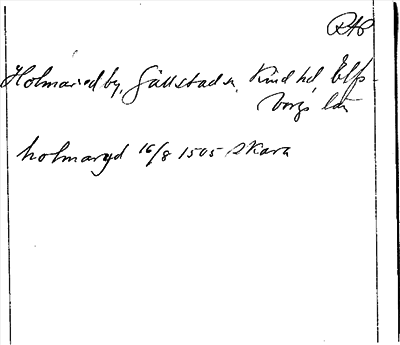 RAP
Holmaried by, Gällstad sn, Kind hd, Elfs-
borgs län
holmaryd 16/8 1505 Skara